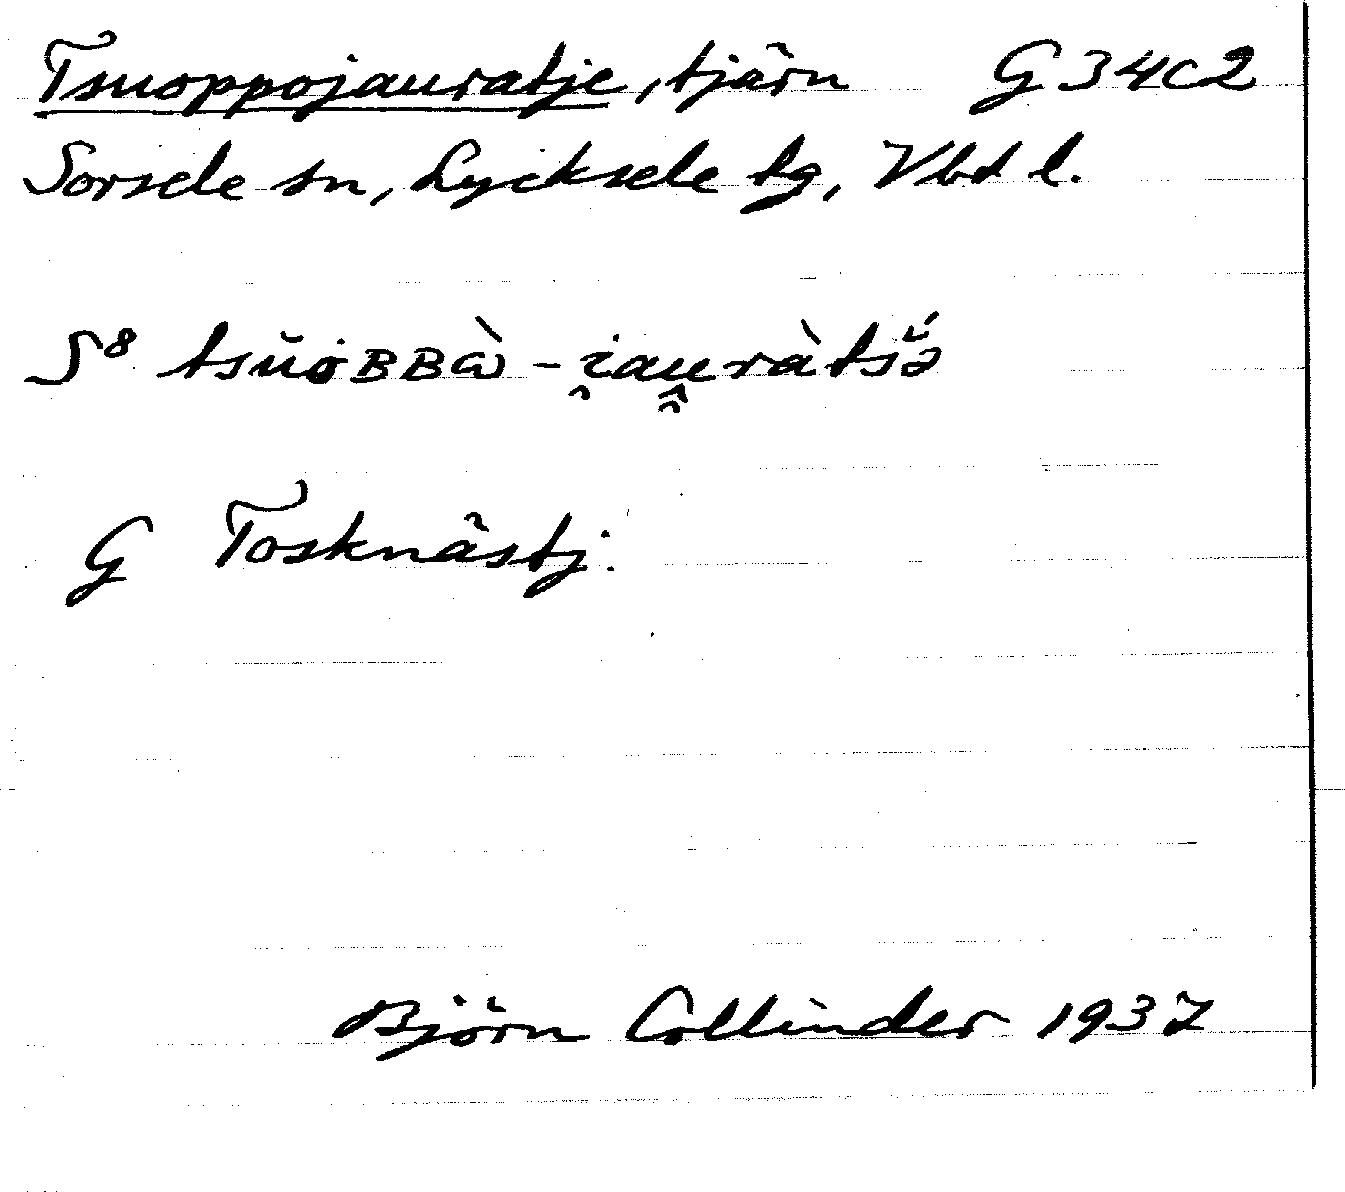 Tsuoppojauratje, tjärn G34C2
Sorsele sn, Lycksele lg, Vbd l.
S⁸ tsŭȯʙʙɷ̀ - i̯au̯ràtsə̆́
G Tosknästj.
Björn Collinder 1937